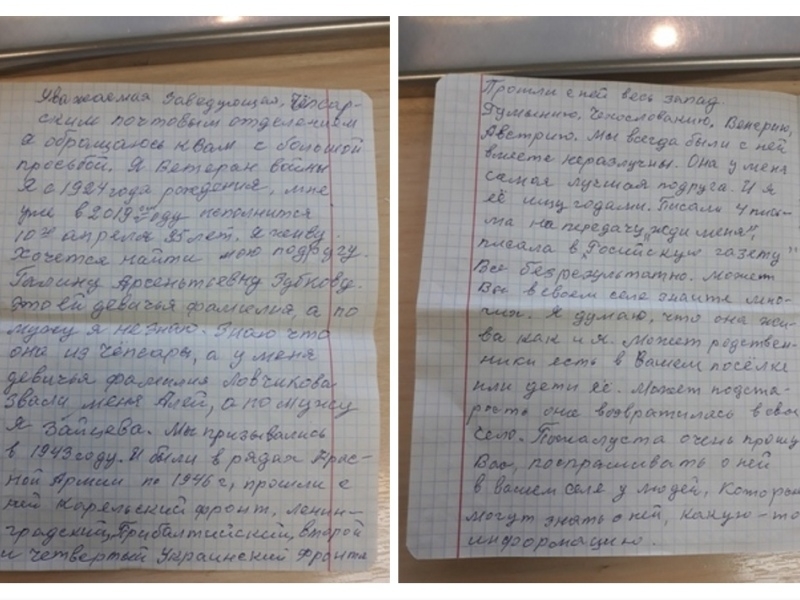 Уважаемая Заведующая, Чёпсар-
ским почтовым отделением
я обращаюсь к Вам с большой
просьбой. Я Ветеран войны
Я с 1924 года рождения, мне
уже в 2019 году исполнится
10го апреля 95 лет. Я живу.
Хочется найти мою подругу.
Галину Арсеньтьевну Зубкову.
это её девичья фамилия, а по
мужу я не знаю. Знаю что
она из Чёпсары, а у меня
девичья фамилия Ловчикова
Звали меня Алей, а по мужу
Я Зайцева. Мы призывались
в 1943 году. И были в рядах Крас-
ной Армии по 1946 г, прошли с
ней Карельский фронт, Ленин-
градский, Прибалтийский, второй
и четвертый Украинский Фронта
Прошли с ней весь запад.
Румынию, Чехословакию, Венгрию,
Австрию. Мы всегда были с ней
вместе неразлучны. Она у меня
самая лучшая подруга. И я
её ищу годами. Писала 4 пись-
ма на передачу „жди меня",
писала в „Росийскую газету"
Всё безрезультатно. Может
Вы в своем селе знаите мно-
гих. Я думаю, что она жи-
ва как и я. Может родствен-
ники есть в Вашем посёлке
или дети её. Может под ста-
рость она возвратилась в своё
село. Пожалуста очень прошу
Вас, поспрашивать о ней
в вашем селе у людей, которые
могут знать о ней, какую-то
информацию.